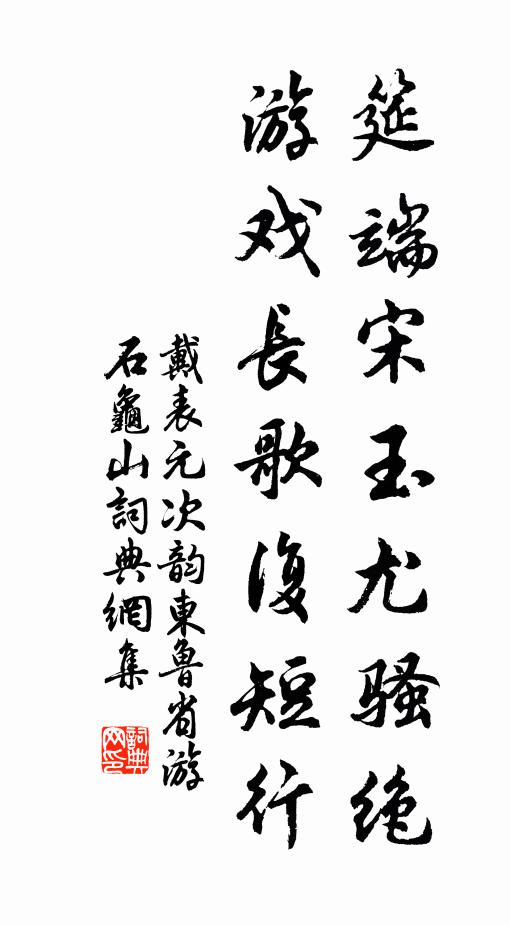 筵端宋玉尤骚绝
游戏長歌復短行
戴表元次韵東魯省游
石龜山詞典網集
詞典網印